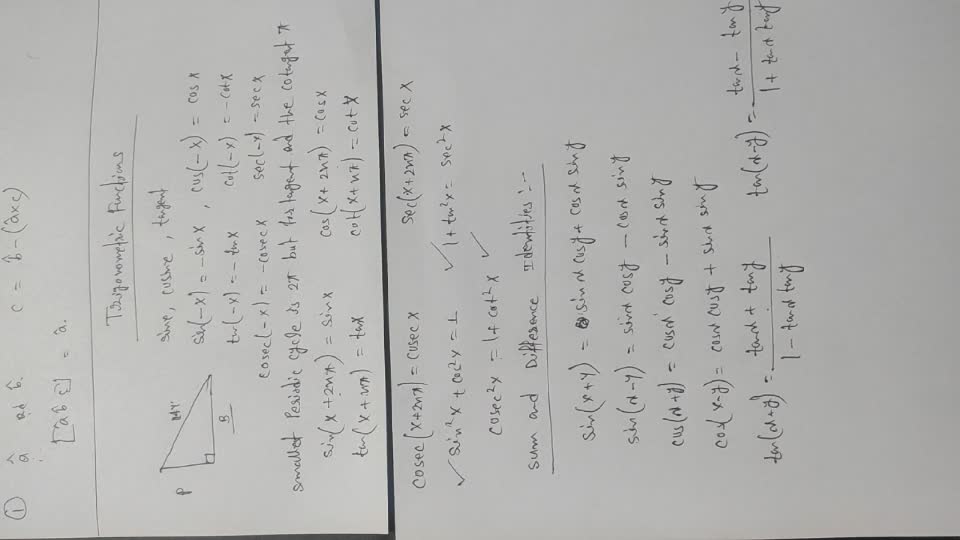 ① â ad b̂. c = b̂ - (âxc)
[âb̂ĉ] = â.
Trigonometric Functions
sine, cosine, tangent
P
HY
B
sin(-x) = -sin x , cos(-x) = cos x
tan(-x) = -tan x cot(-x) = -cot x
cosec(-x) = -cosec x sec(-x) = sec x
smallest Periodic cycle is 2π but for tangent and the cotangent π
sin(x+2nπ) = sin x cos(x+2nπ) = cos x
tan(x+nπ) = tan x cot(x+nπ) = cot x
cosec(x+2nπ) = cosec x sec(x+2nπ) = sec x
✓ sin²x + cos²x = 1 ✓ 1 + tan²x = sec²x
cosec²x = 1+ cot²x ✓
sum and Difference Identities :-
sin(x+y) = sinx cosy + cosx siny
sin(x-y) = sinx cosy - cosx siny
cos(x+y) = cosx cosy - sinx siny
cos(x-y) = cosx cosy + sinx siny
tan(x+y) = tanx + tany / 1 - tanx tany tan(x-y) = tanx - tany / 1 + tanx tany